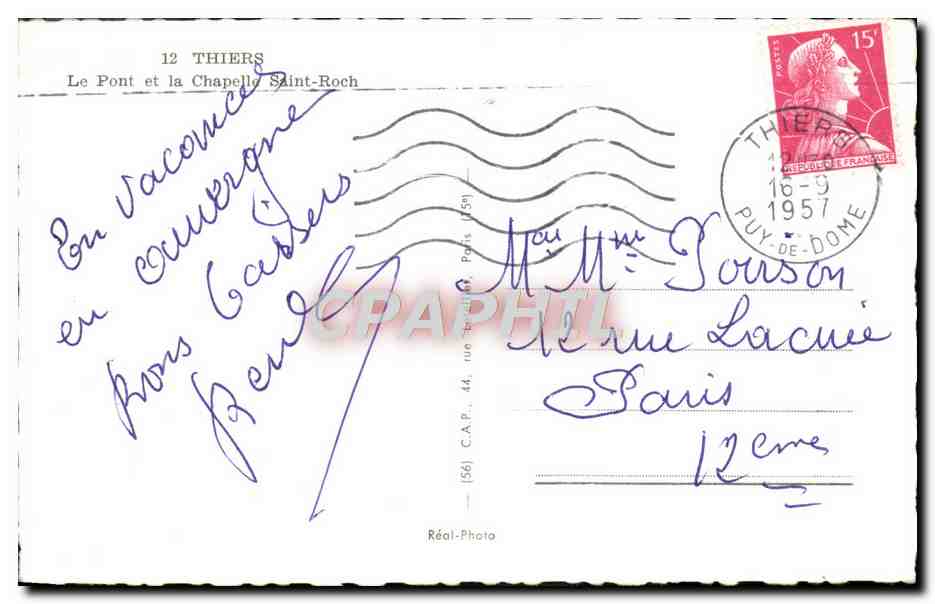 12 THIERS
Le Pont et la Chapelle Saint-Roch
En vacances
en auvergne
Bons baisers
POSTES
15F
REPUBLIQUE FRANÇAISE
THIERS
16-9
1957
PUY-DE-DOME
Mme
12 rue Lacuée
Paris
12eme
(56) C.A.P., 44, rue Paris (15e)
Réal-Photo
CPAPHIL